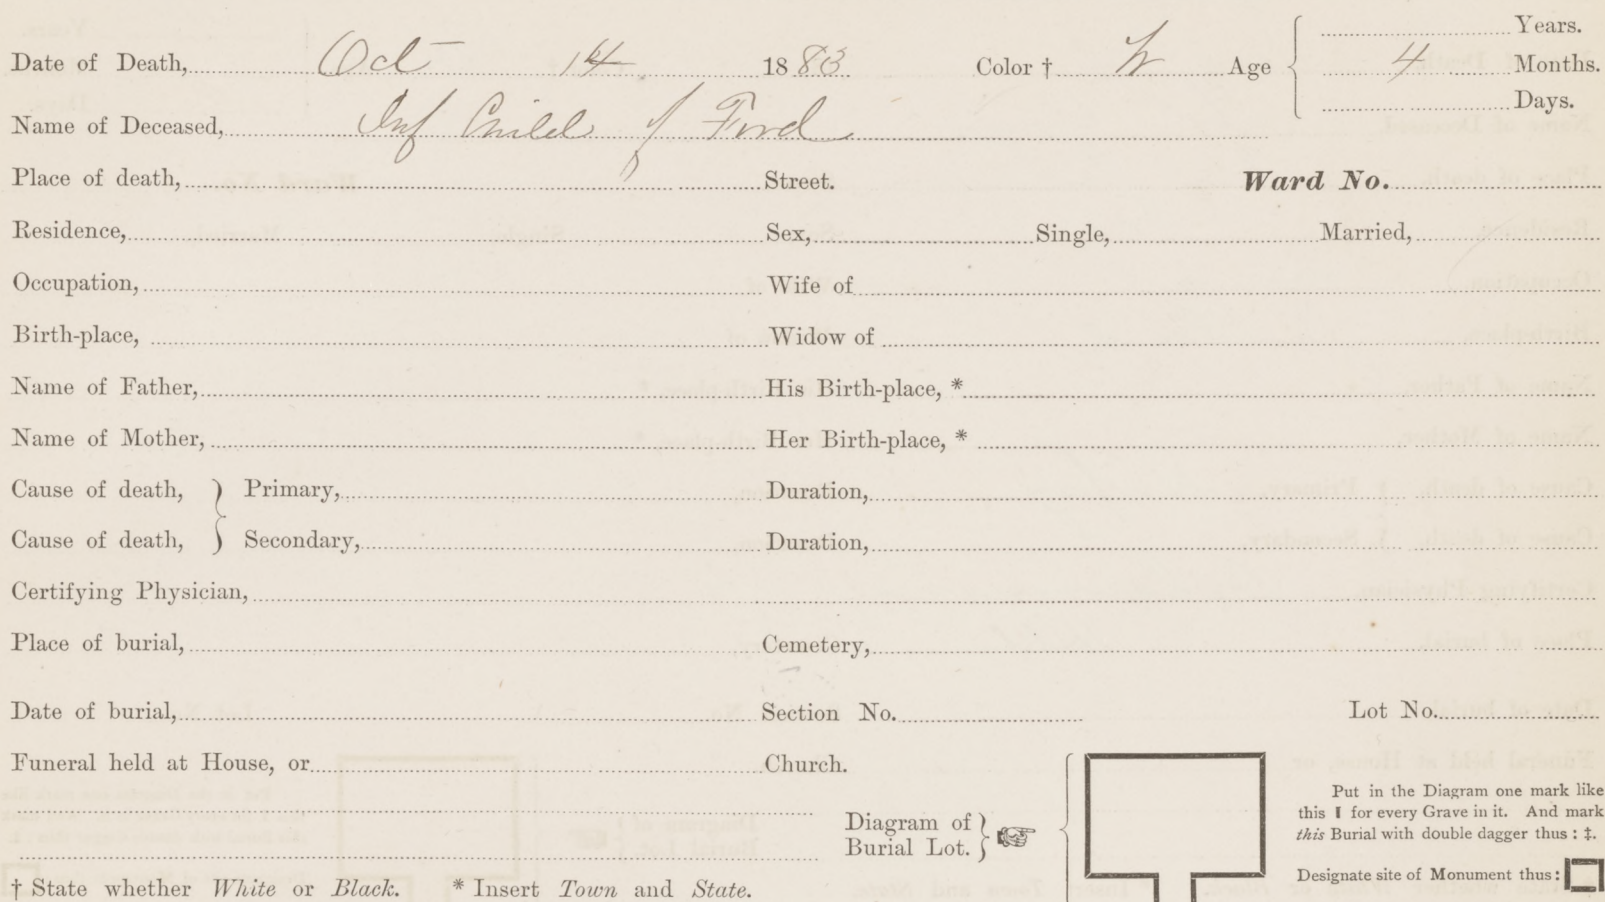 Years.
Date of Death, Oct 14 1883 Color † W Age 4 Months.
Days.
Name of Deceased, Inf Child of Ford
Place of death, Street. Ward No.
Residence, Sex, Single, Married,
Occupation, Wife of
Birth-place, Widow of
Name of Father, His Birth-place, *
Name of Mother, Her Birth-place, *
Cause of death, } Primary, Duration,
Cause of death, } Secondary, Duration,
Certifying Physician,
Place of burial, Cemetery,
Date of burial, Section No. Lot No.
Funeral held at House, or Church.
Diagram of
Burial Lot.
Put in the Diagram one mark like
this I for every Grave in it. And mark
this Burial with double dagger thus : ‡.
Designate site of Monument thus :
† State whether White or Black. * Insert Town and State.